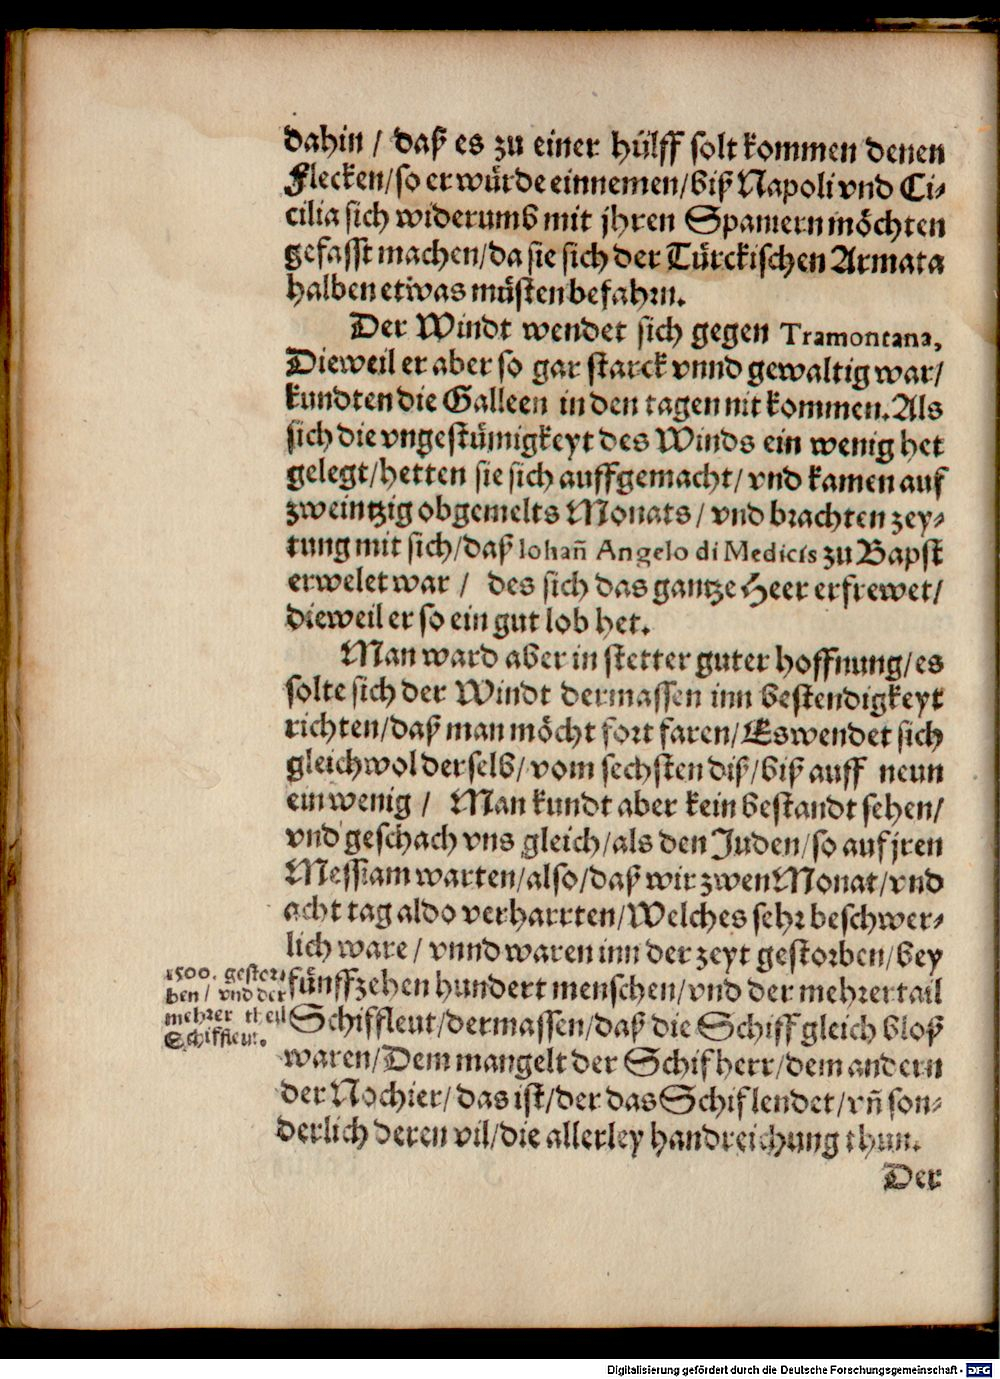 dahin / daß es zu einer hülff solt kommen denen
Flecken/so er würde einnemen/biß Napoli vnd Ci-
cilia sich widerumb mit jhren Spaniern möchten
gefasst machen/da sie sich der Türckischen Armata
halben etwas müsten befahrn.
Der Windt wendet sich gegen Tramontana,
Dieweil er aber so gar starck vnnd gewaltig war/
kundten die Galleen in den tagen nit kommen. Als
sich die vngestümigkeyt des Winds ein wenig het
gelegt/hetten sie sich auffgemacht/ vnd kamen auf
zweintzig obgemelts Monats / vnd brachten zey-
tung mit sich/daß Iohan̄ Angelo di Medicis zu Bapst
erwelet war / des sich das gantze Heer erfrewet/
dieweil er so ein gut lob het.
Man ward aber in stetter guter hoffnung/es
solte sich der Windt dermassen inn bestendigkeyt
richten/daß man möcht fort faren/Es wendet sich
gleichwol derselb/ vom sechsten diß/biß auff neun
ein wenig / Man kundt aber kein bestandt sehen/
vnd geschach vns gleich/als den Juden/so auf jren
Messiam warten/also/daß wir zwen Monat/vnd
acht tag aldo verharrten/Welches sehr beschwer-
lich ware / vnnd waren inn der zeyt gestorben/bey
fünffzehen hundert menschen/vnd der mehrer tail
Schiffleut/dermassen/daß die Schiff gleich bloß
waren/Dem mangelt der Schifherr/dem andern
der Nochier/das ist/der das Schif lendet/vn̄ son-
derlich deren vil/die allerley handreichung thun.
Der
1500. gestor-
ben / vnd der
mehrer theil
Schiffleut.
Digitalisierung gefördert durch die Deutsche Forschungsgemeinschaft - DFG